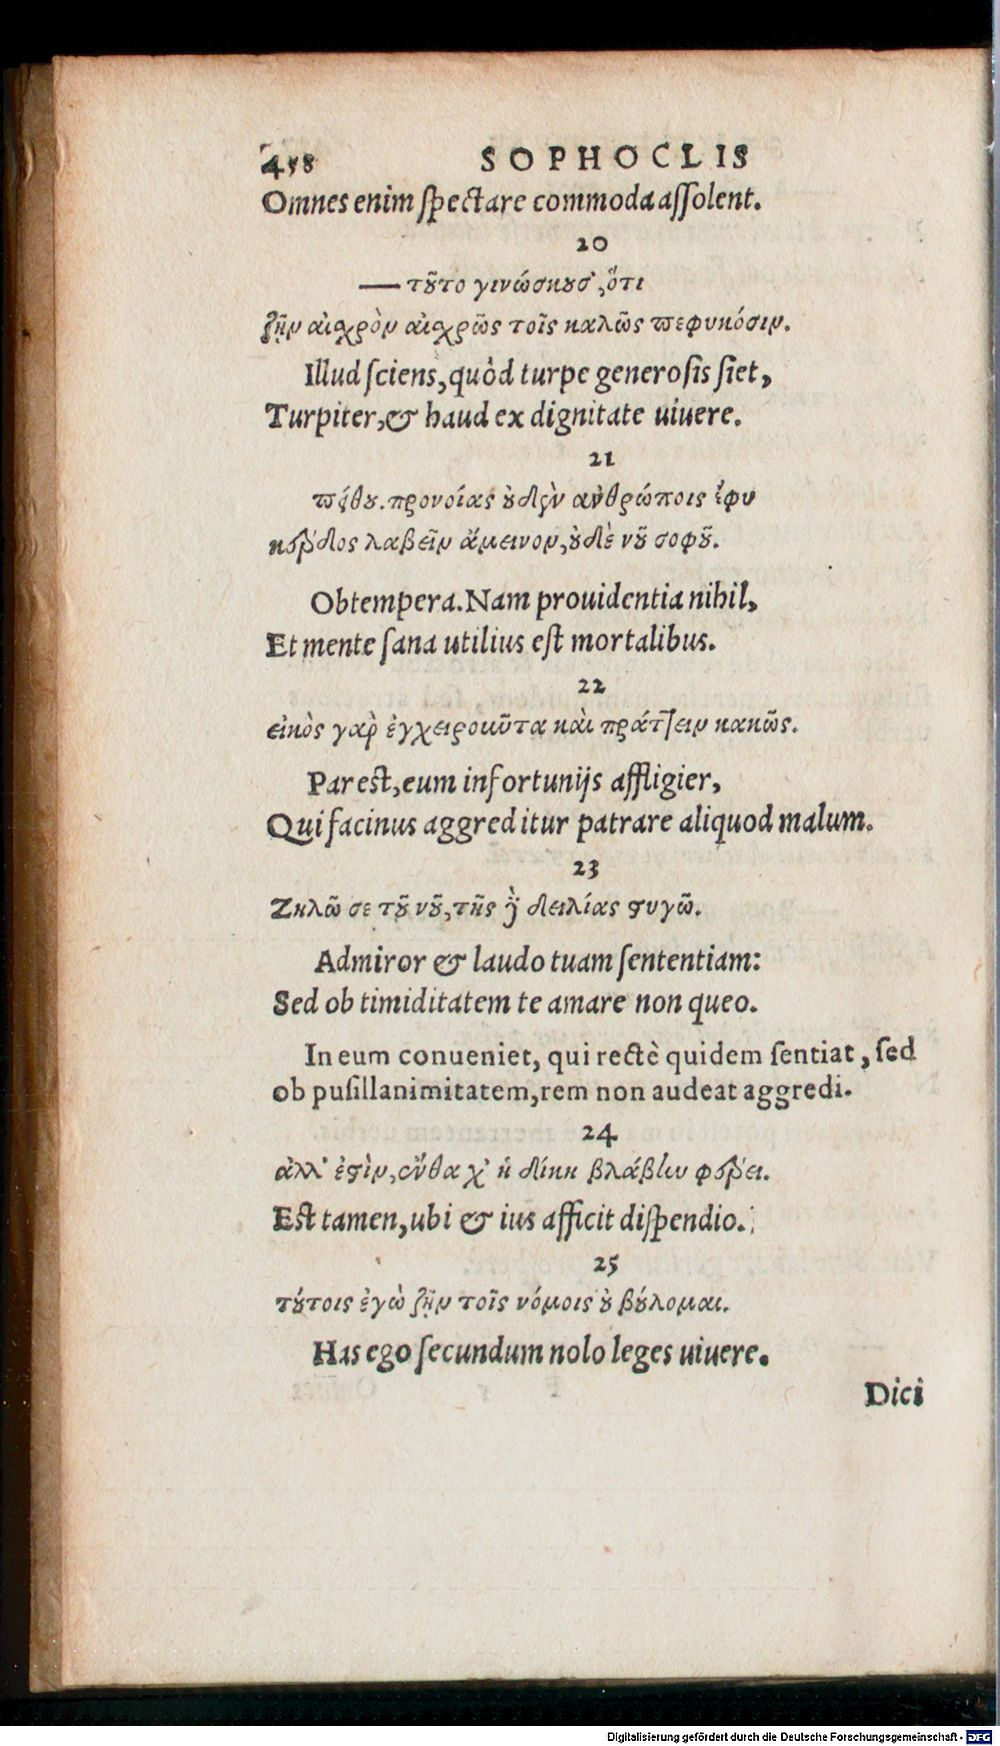 458 SOPHOCLIS
Omnes enim spectare commoda assolent.
20
— τοῦτο γινώσκουσ', ὅτι
ζῆν αἰσχρὸν αἰσχρῶς τοῖς καλῶς πεφυκόσιν.
Illud sciens, quòd turpe generosis siet,
Turpiter, & haud ex dignitate uiuere.
21
πείθου. προνοίας οὐδὲν ἀνθρώποις ἔφυ
κέρδος λαβεῖν ἄμεινον, οὐδὲ νοῦ σοφοῦ.
Obtempera. Nam prouidentia nihil,
Et mente sana utilius est mortalibus.
22
εἰκὸς γὰρ ἐγχειροῦντα καὶ πράττειν κακῶς.
Par est, eum infortunijs affligier,
Qui facinus aggreditur patrare aliquod malum.
23
Ζηλῶ σε τοῦ νοῦ, τῆς δὲ δειλίας στυγῶ.
Admiror & laudo tuam sententiam:
Sed ob timiditatem te amare non queo.
In eum conueniet, qui rectè quidem sentiat, sed
ob pusillanimitatem, rem non audeat aggredi.
24
ἀλλ' ἐστὶν, ἔνθα χ' ἡ δίκη βλάβην φέρει.
Est tamen, ubi & ius afficit dispendio.
25
τούτοις ἐγὼ ζῆν τοῖς νόμοις οὐ βούλομαι.
Has ego secundum nolo leges uiuere.
Dici
Digitalisierung gefördert durch die Deutsche Forschungsgemeinschaft - DFG